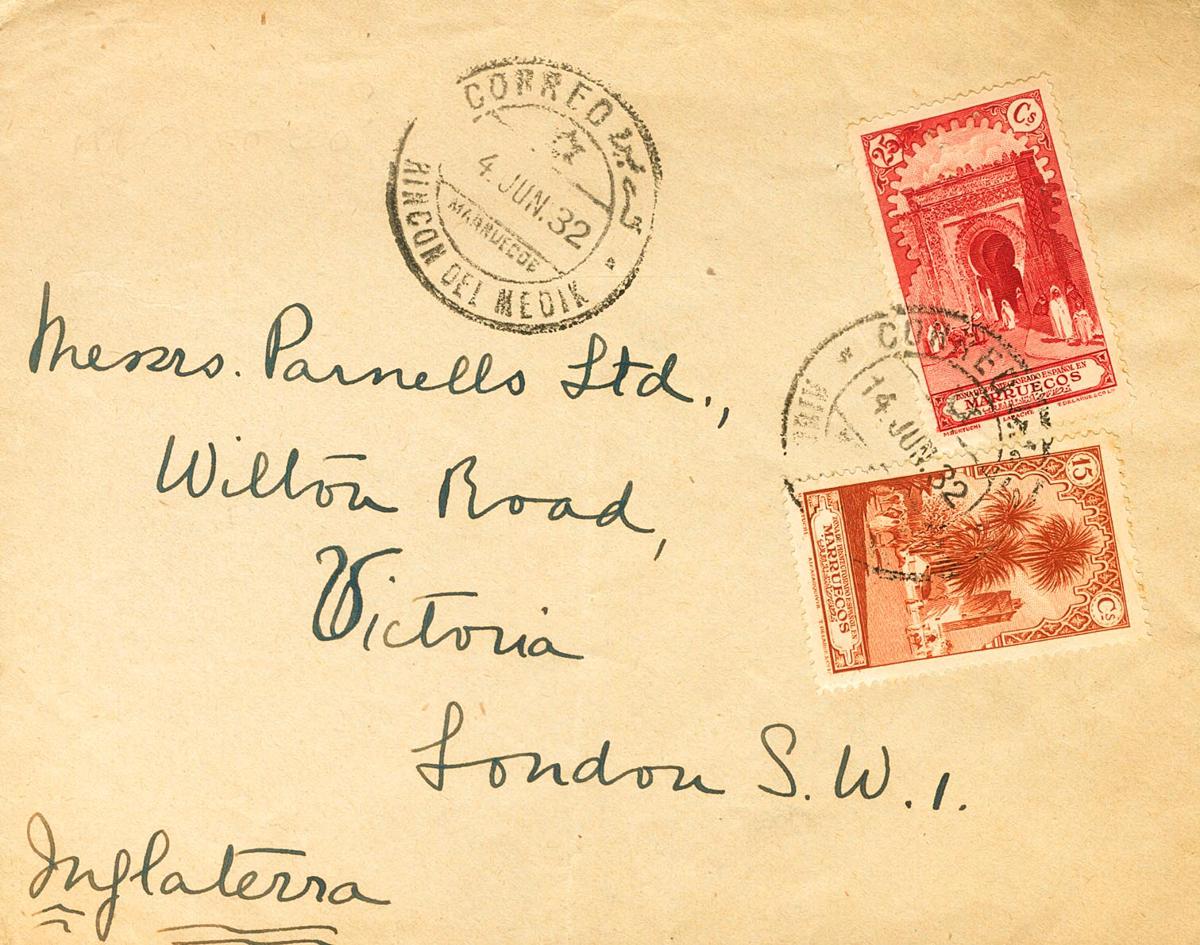 CORREO
4 JUN. 32
MARRUECOS
RINCON DEL MEDIK
25
Cs
ZONA DE PROTECTORADO ESPAÑOL EN
MARRUECOS
CORREO
14 JUN. 32
15
Cs
ZONA DE PROTECTORADO ESPAÑOL EN
MARRUECOS
Messrs. Parnells Ltd.,
Wilton Road,
Victoria
London S.W.1.
Inglaterra